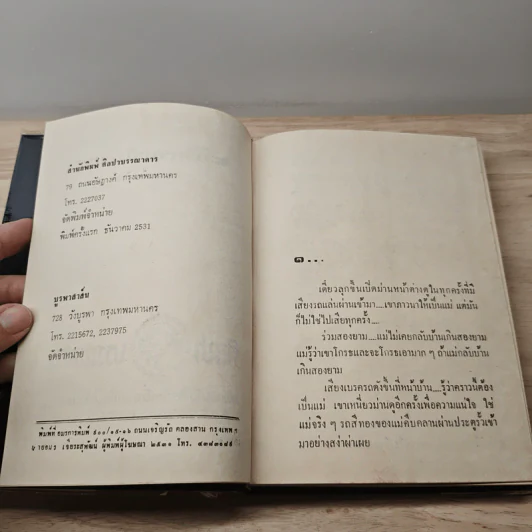 สำนักพิมพ์ ศิลปาบรรณาคาร
กรุงเทพมหานคร
โทร. 2227037
จัดพิมพ์จำหน่าย
พิมพ์ครั้งแรก ธันวาคม 2531
บูรพาสาส์น
728 วังบูรพา กรุงเทพมหานคร
โทร. 2215672, 2237975
จัดจำหน่าย
พิมพ์ที่ ถนนเจริญรัถ คลองสาน กรุงเทพ ฯ
ผู้พิมพ์ผู้โฆษณา ๒๕๓๑ โทร.
๑...
เดี๋ยวลุกขึ้นเปิดม่านหน้าต่างดูในทุกครั้งที่มี
เสียงรถแล่นผ่านเข้ามา....เขาภาวนาให้เป็นแม่ แต่มัน
ก็ไม่ใช่ไปเสียทุกครั้ง....
ร่วมสองยาม....แม่ไม่เคยกลับบ้านเกินสองยาม
แม่รู้ว่าเขาโกรธและจะโกรธเอามาก ๆ ถ้าแม่กลับบ้าน
เกินสองยาม
เสียงเบรครถดังขึ้นที่หน้าบ้าน....รู้ว่าคราวนี้ต้อง
เป็นแม่ เขาเหนี่ยวม่านดูอีกครั้งเพื่อความแน่ใจ ใช่
แม่จริง ๆ รถสีทองของแม่คืบคลานผ่านประตูรั้วเข้า
มาอย่างสง่าผ่าเผย